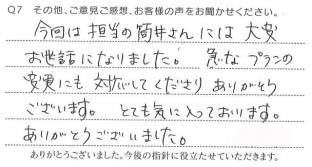 Q7 その他、ご意見ご感想、お客様の声をお聞かせください。
今回は担当の筒井さんには大変
お世話になりました。急なプランの
変更にも対応してくださりありがとう
ございます。とても気に入っております。
ありがとうございました。
ありがとうございました。今後の指針に役立たせていただきます。